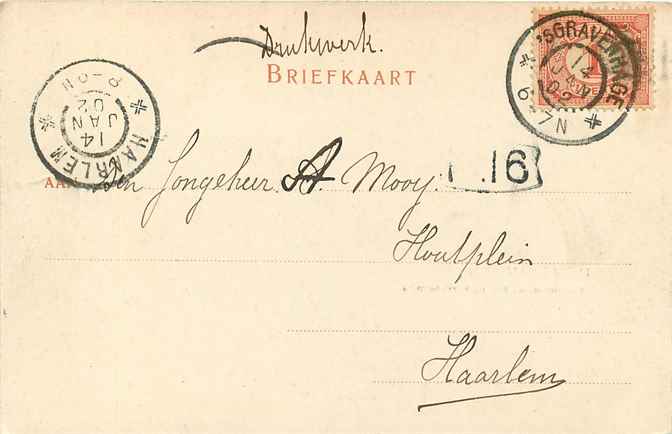 Drukwerk.
BRIEFKAART
'sGRAVENHAGE
14
JAN
02
6-7N
HAARLEM
14
JAN
02
8-9N
AAN den Jongeheer A. Mooy.
16
Houtplein
Haarlem